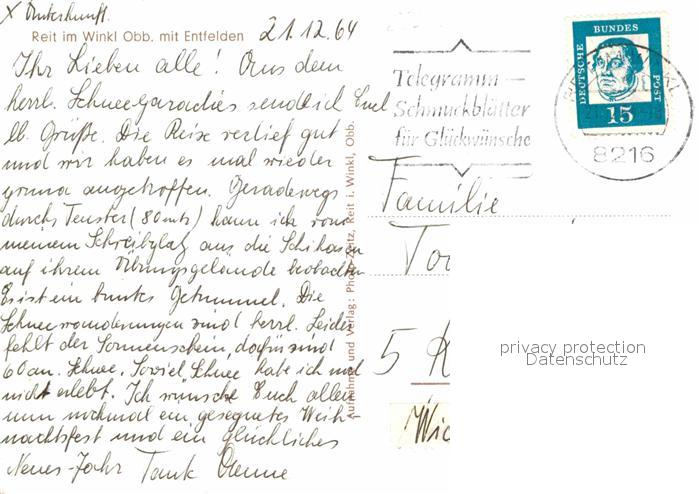 x Unterkunft.
Reit im Winkl Obb. mit Entfelden
21.12.64
Ihr Lieben alle! Aus dem
herrl. Schneeparadies sende ich Euch
lb. Grüße. Die Reise verlief gut
und wir haben es mal wieder
prima angetroffen. Geradewegs
durchs Fenster (80 mtr) kann ich von
meinem Schreibplatz aus die Schihasen
auf ihrem Übungsgelände beobachten
Es ist ein buntes Getümmel. Die
Schneewanderungen sind herrl. Leider
fehlt der Sonnenschein, dafür sind
60 cm. Schnee. Soviel Schnee habe ich noch
nicht erlebt. Ich wünsche Euch allen
nun nochmal ein gesegnetes Weih-
nachtsfest und ein glückliches
Neues-Jahr Tante Änne
Aufnahme und Verlag: Photo-Zeitz, Reit i. Winkl, Obb.
Telegramm
Schmuckblätter
für Glückwünsche
DEUTSCHE BUNDES POST
15
8216
Familie
5
privacy protection
Datenschutz